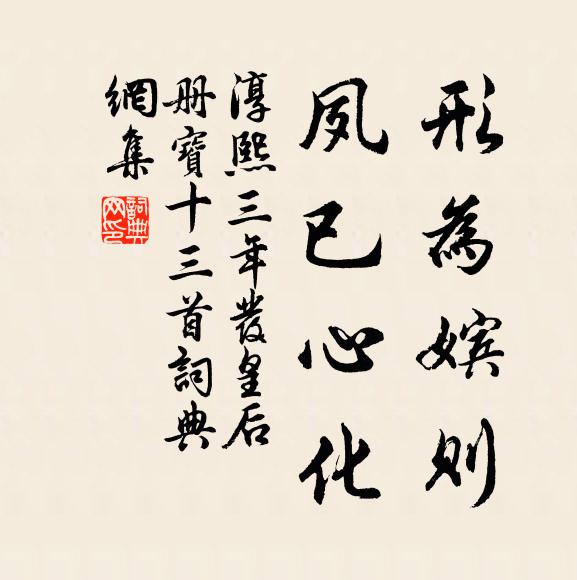 形為嬪則
夙已心化
淳熙三年發皇后
册寶十三首詞典
網集
詞典
网印